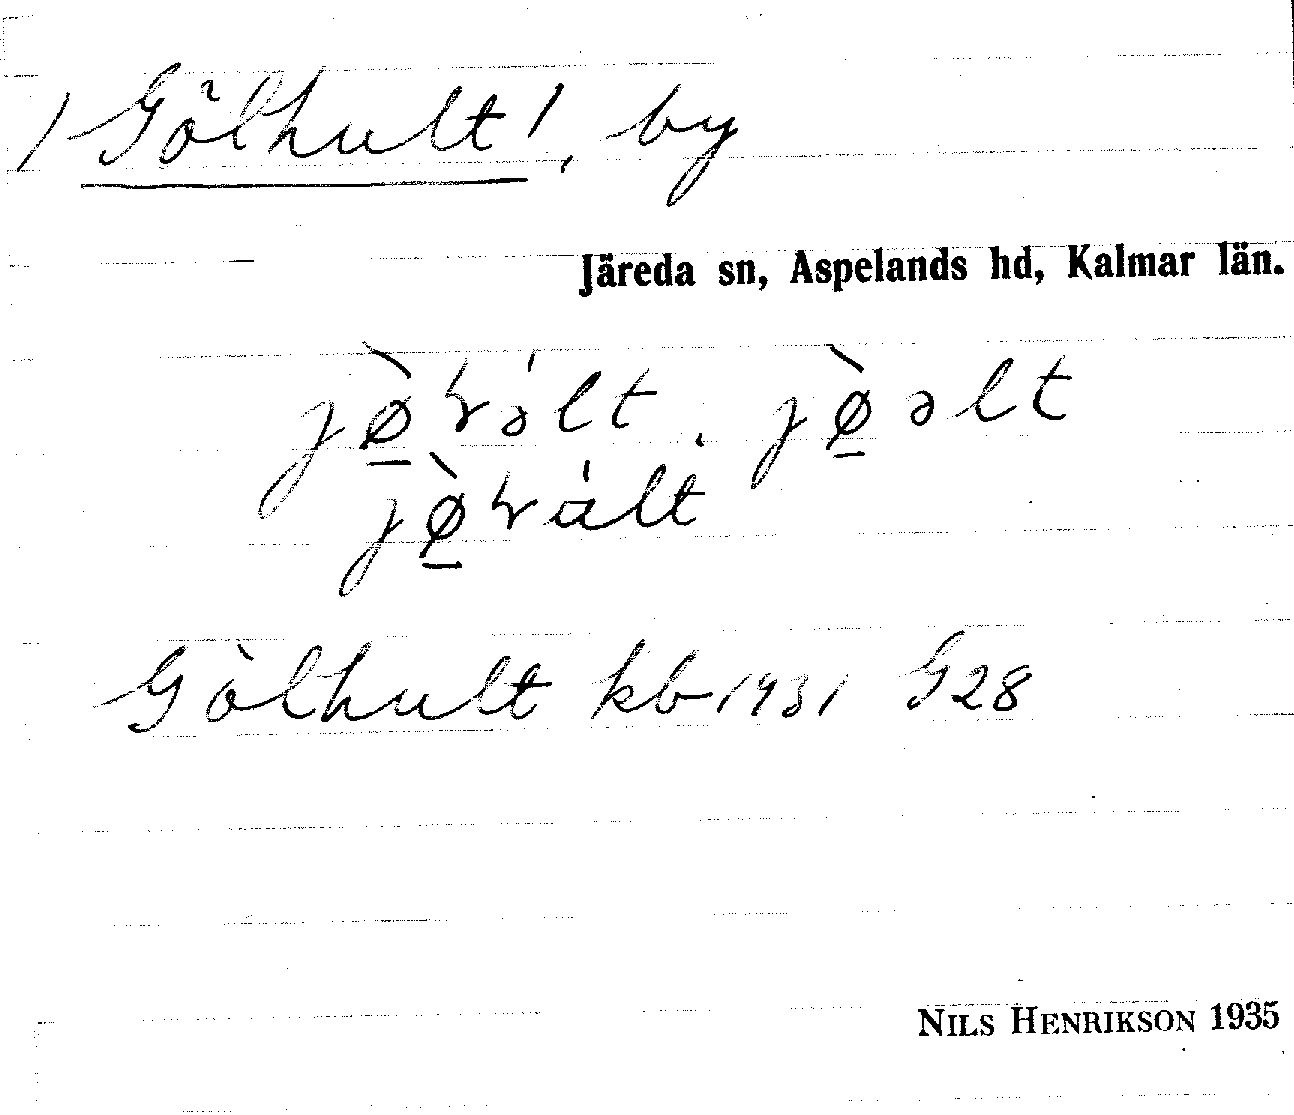 /Gölhult/, by
Järeda sn, Aspelands hd, Kalmar län.
jø̲̀ꞎə́lt. jø̲̀əlt
jø̲̀ꞎált
Gölhult kb 1931 G28
NILS HENRIKSON 1935